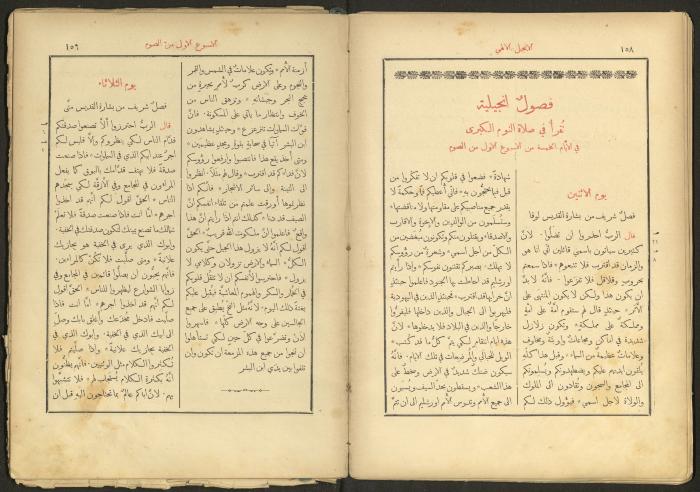 ١٥٨
الانجيل الالهي
فصولٌ انجيلية
تُقرأُ في صلاة النوم الكبرى
في الايام الخمسة من الاسبوع الاول من الصوم
يوم الاثنين
فصلٌ شريف من بشارة القديس لوقا
قال الربُّ احذروا ان تضلُّوا. لانَّ
كثيرين سيأتون باسمي قائلين اني انا هو
والزمان قد اقترب فلا تتبعوهم* فاذا سمعتم
بحروبٍ وقلاقل فلا تفزعوا* فانَّه لا بدَّ
ان يكون هذا ولكن لا يكون المنتهى على
الأَثر* حينئذٍ قال لهم ستقوم امَّةٌ على امَّةٍ
ومملكةٌ على مملكة* وتكون زلازل
شديدة في اماكن ومجاعات واوبئة ومخاوف
وعلامات عظيمة من السماء* وقبل هذا كلّه
يلقون ايديهم عليكم ويضطهدونكم ويسلمونكم
الى المجامع والسجون وتُقادون الى الملوك
والولاة لاجل اسمي* فيؤول ذلك لكم
شهادةً* فضعوا في قلوبكم ان لا تفكّروا من
قبل فيما تحتجّون به* فاني أُعطيكم فمًا وحكمةً لا
يقدر جميع مناصبيكم على مقاومتها ولا مناقضتها*
وستُسلَمون من الوالدين والاخوة والاقارب
والاصدقاء ويقتلون منكم وتكونون مبغَضين من
الكلّ من اجل اسمي* وشعرةٌ من رؤوسكم
لا تهلك* بصبركم تقتنون نفوسكم* واذا رأيتم
اورشليم قد احاطت بها الجنود فاعلموا حينئذٍ
انَّ خرابها قد اقترب* حينئذٍ الذين في اليهودية
فليهربوا الى الجبال والذين داخلها فليفرّوا
خارجًا والذين في البلاد فلا يدخلوها* لانَّ
هذه ايام انتقام لكي يتمَّ كلُّ ما قد كُتب*
الويل للحبالى والمرضعات في تلك الايام* فانَّه
سيكون ضنك شديدٌ في الارض وسخطٌ على
هذا الشعب* ويسقطون بحدّ السيف ويُسبَون
الى جميع الأمم وتدوس الأمم اورشليم الى ان تتمَّ
الاسبوع الاول من الصوم
١٥٦
أزمنة الأمم* وتكون علاماتٌ في الشمس والقمر
والنجوم وعلى الارض كربٌ لأُممٍ بحيرة من
عجيج البحر وجيشانه* وتزهق الناس من
الخوف وانتظار ما يأتي على المسكونة. فانَّ
قوَّات السماوات تتزعزع* وحينئذٍ يشاهدون
ابن البشر آتيًا في سحابةٍ بقوَّةٍ ومجدٍ عظيمين*
ومتى أخذ يقع هذا فانتصبوا وارفعوا رؤوسكم
لانَّ فداءكم قد اقترب* وقال لهم مثلاً. انظروا
الى التينة والى سائر الاشجار* فانَّكم اذا
نظرتموها أورقت علمتم من تلقاء انفسكم انَّ
الصيف قد دنا* كذلك انتم اذا رأيتم انَّ هذا
واقعٌ فاعلموا انَّ ملكوت الله قريب* الحقَّ
اقول لكم انَّه لا يزول هذا الجيل حتى يكون
الكلُّ* السماءُ والارض تزولان وكلامي لا
يزول* فاحترسوا لأنفسكم ان لا تثقل قلوبكم
في الخمار والسكر والهموم المعاشيَّة فيُقبل عليكم
بغتةً ذلك اليوم* لانَّه مثل الفخ يُطبق على جميع
الجالسين على وجه الارض كلّها* فاسهروا
اذًا وتضرَّعوا في كلّ حينٍ لكي تستأهلوا
ان تنجوا من جميع هذه المزمعة ان تكون وان
تقفوا بين يدَي ابن البشر
يوم الثلاثاء
فصلٌ شريف من بشارة القديس متى
قال الربُّ احترزوا ألاَّ تصنعوا صدقتكم
قدَّام الناس لكي ينظروكم وإلاَّ فليس لكم
اجرٌ عند ابيكم الذي في السماوات* فاذا صنعت
صدقةً فلا تهتف قدَّامك بالبوق كما يفعل
المراؤون في المجامع وفي الازقَّة لكي يمجّدهم
الناس* الحقَّ اقول لكم انَّهم قد اخذوا
اجرهم* امَّا انت فاذا صنعت صدقةً فلا تعلم
شمالك ما تصنع يمينك لتكون صدقتك في الخفية*
وابوك الذي يرى في الخفية هو يجازيك
علانيةً* ومتى صلَّيت فلا تكن كالمرائين.
فانَّهم يحبّون ان يصلُّوا قائمين في المجامع وفي
زوايا الشوارع ليظهروا للناس* الحقَّ اقول
لكم انَّهم قد اخذوا اجرهم* امَّا انت فاذا
صلَّيت فادخل مخدعك وأغلق بابك وصلّ
الى ابيك الذي في الخفية. وابوك الذي في
الخفية يجازيك علانيةً* واذا صلَّيتم فلا
تكثروا الكلام مثل الوثنيين. فانَّهم يظنُّون
انَّه بكثرة الكلام يُستجاب لهم* فلا تتشبَّهوا
بهم. لانَّ اباكم عالمٌ بما تحتاجون اليه قبل ان